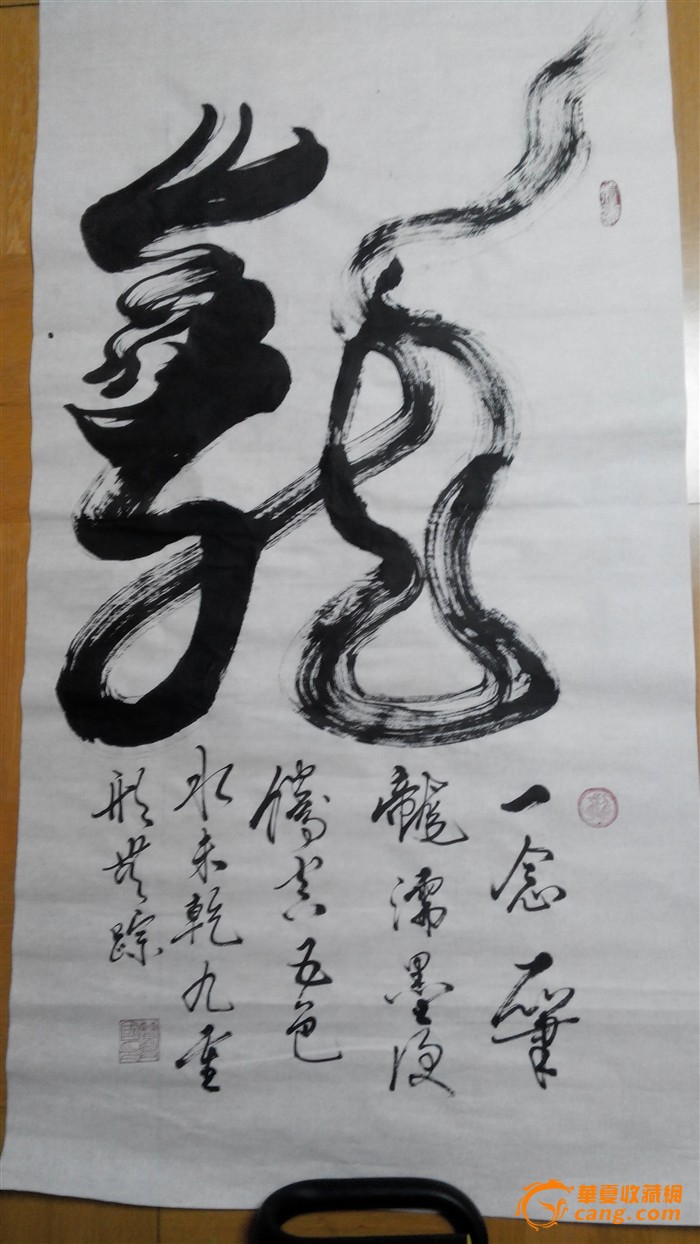 龍
一念一筆
龍濡墨便
騰空五色
水未乾九重
形踪
華夏收藏網
cang.com